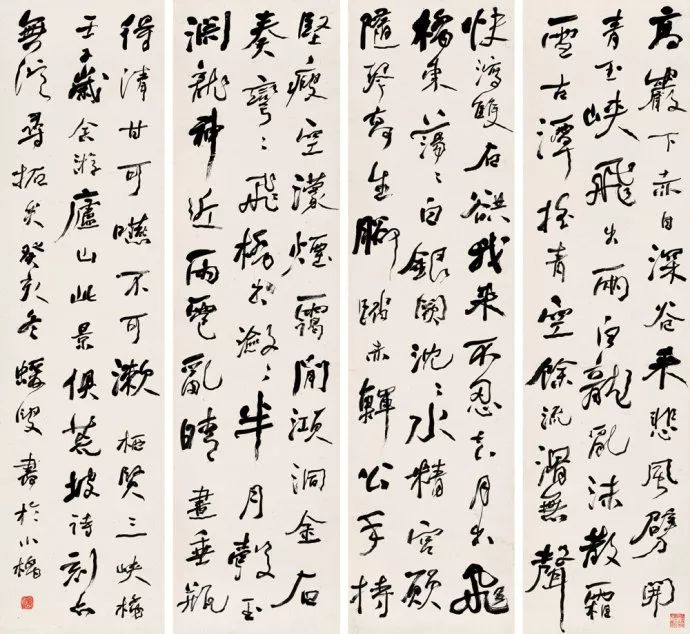 高巖下赤日深谷來悲風劈開
青玉峽飛出兩白龍亂沫散霜
雪古潭搖青空餘流滑無聲
快瀉雙石谼我來不忍去月出飛
橋東蕩〻白銀闕沈〻水精宮願
隨琴高生腳踏赤鯶公手持
堅瘦空濛煙靄間澒洞金石
奏彎〻飛橋出瀲〻半月彀玉
淵龍神近雨雹亂晴晝垂瓶
得清甘可嚥不可漱 栖賢三峽橋
壬子歲余游廬山此景俱荒坡詩刻亦
無從尋拓矣癸亥冬叟書於小橋